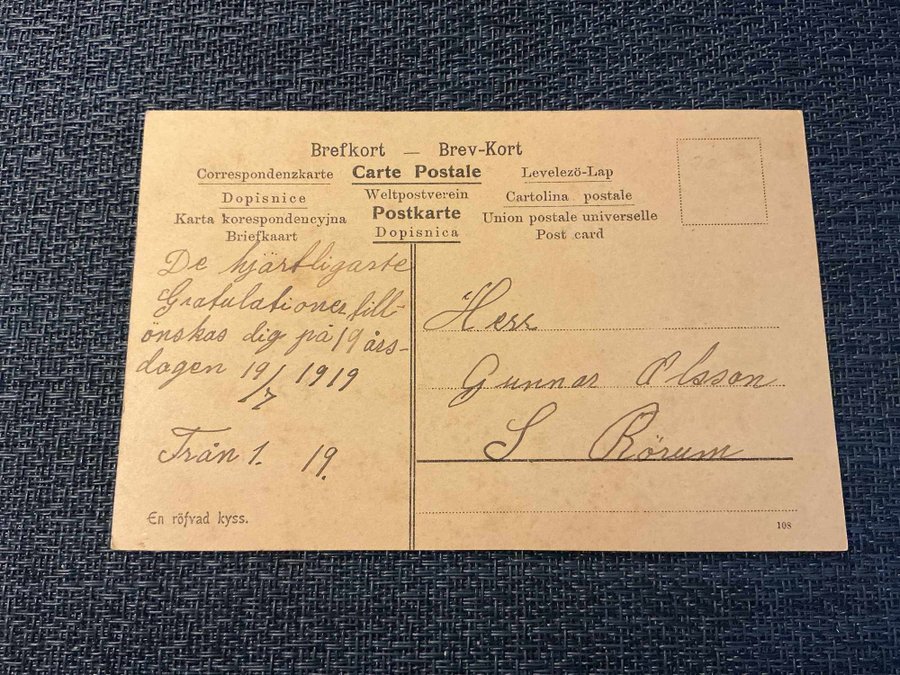 Brefkort — Brev-Kort
Correspondenzkarte Carte Postale Levelezö-Lap
Dopisnice Weltpostverein Cartolina postale
Karta korespondencyjna Postkarte Union postale universelle
Briefkaart Dopisnica Post card
De hjärtligaste
Gratulationer till-
önskas dig på 19 års-
dagen 19/7 1919
Från 1. 19.
En röfvad kyss.
Herr
Gunnar Olsson
S Rörum
108